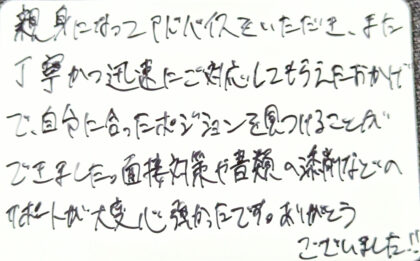 親身になってアドバイスをいただき、また
丁寧かつ迅速にご対応してもらえたおかげ
で、自分に合ったポジションを見つけることが
できました。面接対策や書類の添削などの
サポートが大変心強かったです。ありがとう
ございました!!